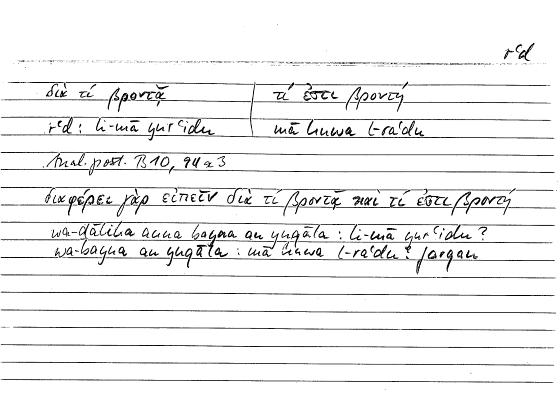 rʿd
διὰ τί βροντᾷ | τί ἐστι βροντή
rʿd: li-mā yurʿidu | mā huwa l-raʿdu
Anal. post. B 10, 94 a 3
διαφέρει γὰρ εἰπεῖν διὰ τί βροντᾷ καὶ τί ἐστι βροντή
wa-ḏālika anna bayna an yuqāla : li-mā yurʿidu ?
wa-bayna an yuqāla : mā huwa l-raʿdu ? farqan